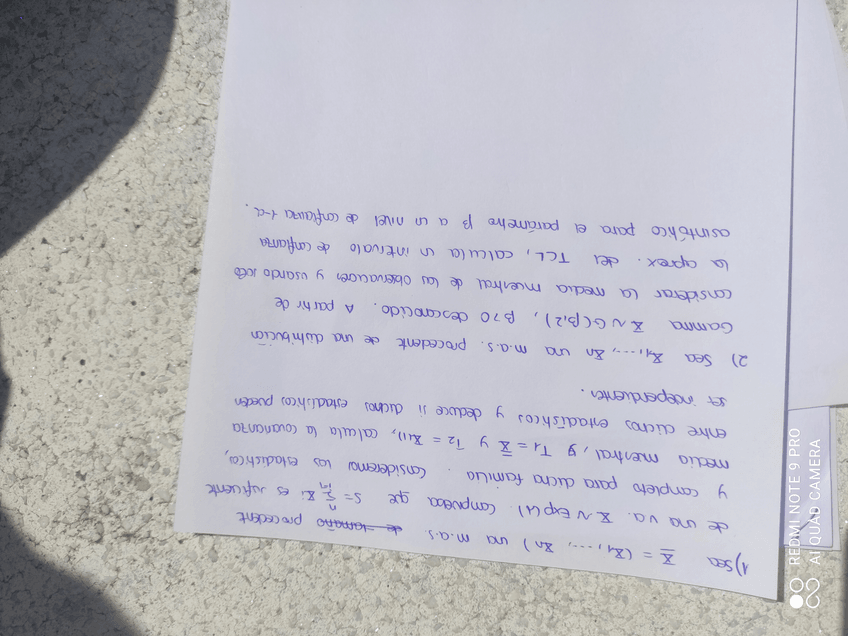 1) Sea X = (X1, ..., Xn) una m.a.s. de tamaño procedente
de una v.a. X ~ Exp(λ). Comprueba que S = Σ Xi es suficiente
y completo para dicha familia. Consideremos los estadísticos,
media muestral, y T1 = X̄ y T2 = X(1), calcula la covarianza
entre dichos estadísticos y deduce si dichos estadísticos pueden
ser independientes.
2) Sea X1, ..., Xn una m.a.s. procedente de una distribución
Gamma X ~ G(β,2), β>0 desconocido. A partir de
considerar la media muestral de las observaciones y usando
la aprox. del TCL, calcula un intervalo de confianza
asintótico para el parámetro β a un nivel de confianza 1-α.
REDMI NOTE 9 PRO
AI QUAD CAMERA